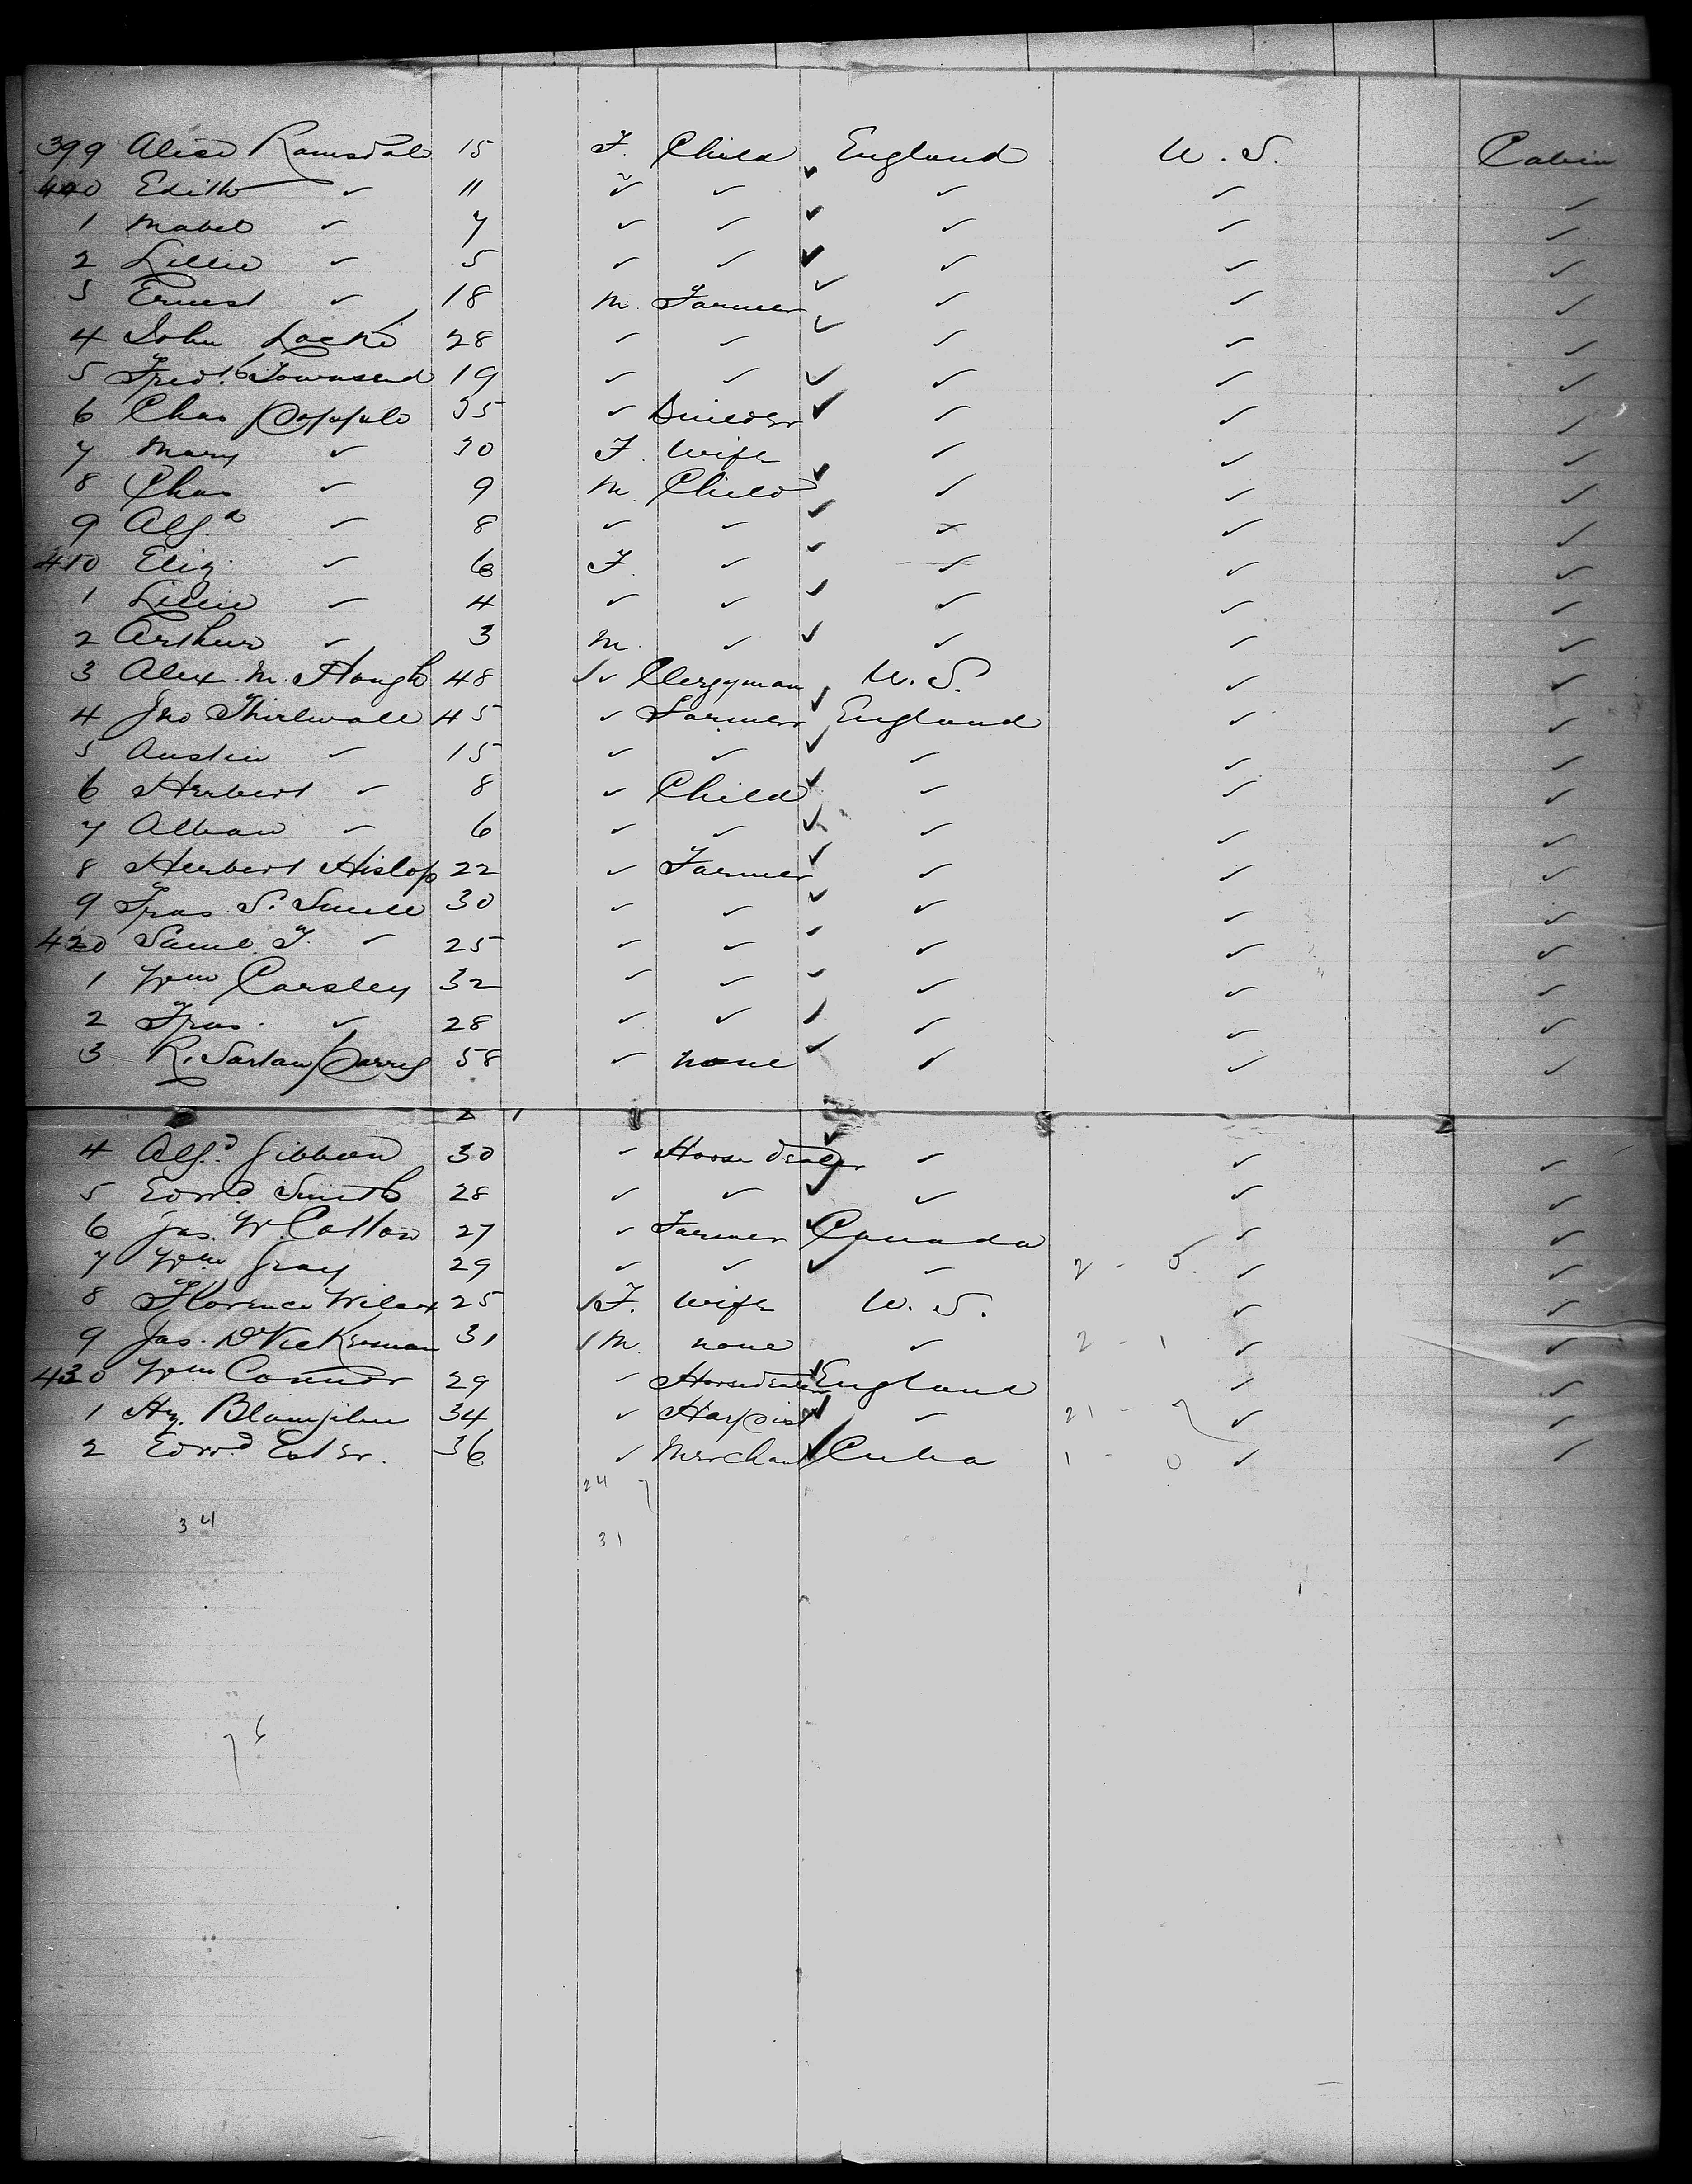 399 Alice Ramsdale 15 F. Child ✓ England U.S. Cabin
400 Edith ✓ 11 ✓ ✓ ✓ ✓ ✓ ✓
1 Mabel ✓ 7 ✓ ✓ ✓ ✓ ✓ ✓
2 Lillie ✓ 5 ✓ ✓ ✓ ✓ ✓ ✓
3 Ernest ✓ 18 M. Farmer ✓ ✓ ✓ ✓
4 John Locke 28 ✓ ✓ ✓ ✓ ✓ ✓
5 Fred. Townsend 19 ✓ ✓ ✓ ✓ ✓ ✓
6 Chas 35 ✓ Builder ✓ ✓ ✓ ✓
7 Mary ✓ 30 F. Wife ✓ ✓ ✓
8 Chas ✓ 9 M. Child ✓ ✓ ✓ ✓
9 Alf.d ✓ 8 ✓ ✓ ✓ ✓ ✓ ✓
410 Eliz. ✓ 6 F. ✓ ✓ ✓ ✓ ✓
1 Lillie ✓ 4 ✓ ✓ ✓ ✓ ✓ ✓
2 Arthur ✓ 3 M. ✓ ✓ ✓ ✓ ✓
3 Alex. M. Hough 48 ✓ Clergyman U.S. ✓ ✓
4 Jno Thirlwall 45 ✓ Farmer ✓ England ✓ ✓
5 Austin ✓ 15 ✓ ✓ ✓ ✓ ✓ ✓
6 Herbert ✓ 8 ✓ Child ✓ ✓ ✓ ✓
7 Alban ✓ 6 ✓ ✓ ✓ ✓ ✓ ✓
8 Herbert Hislop 22 ✓ Farmer ✓ ✓ ✓ ✓
9 Fras S. 30 ✓ ✓ ✓ ✓ ✓ ✓
420 Saml. F. ✓ 25 ✓ ✓ ✓ ✓ ✓ ✓
1 Wm Carsley 32 ✓ ✓ ✓ ✓ ✓ ✓
2 Fras. ✓ 28 ✓ ✓ ✓ ✓ ✓ ✓
3 R. 58 ✓ none ✓ ✓ ✓ ✓
2 1
4 Alf.d Gibbon 30 ✓ Horse dealer ✓ ✓ ✓ ✓
5 Edwd Smith 28 ✓ ✓ ✓ ✓ ✓ ✓
6 Jas. W. Cotton 27 ✓ Farmer ✓ Canada ✓ ✓
7 Wm Gray 29 ✓ ✓ ✓ ✓ 2 - 0 ✓ ✓
8 Florence Wilcox 25 F. Wife U.S. ✓ ✓
9 Jas. D. Vickerman 31 M. none ✓ 2 - 1 ✓ ✓
430 Wm Connor 29 ✓ Horsedealer ✓ England ✓ ✓
1 Hy. 34 ✓ Harpist ✓ ✓ 21 - 7 ✓ ✓
2 Edwd. 36 ✓ Merchant ✓ Cuba 1 - 0 ✓ ✓
24 7
34
31
76